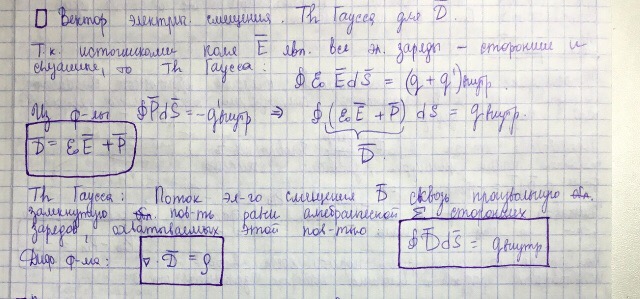 Вектор электрич. смещения. Th Гаусса для D̅.
Т.к. источниками поля E̅ явл. все эл. заряды – сторонние и
связанные, то Th Гаусса:
∮ε₀E̅dS̅ = (q + q')внутр
Из ф-лы ∮P̅dS̅ = -q'внутр ⇒ ∮(ε₀E̅ + P̅) dS = qвнутр.
D̅ = ε₀E̅ + P̅
D̅.
Th Гаусса: Поток эл-го смещения D̅ сквозь произвольную
замкнутую пов-ть равен алгебраической Σ сторонних
зарядов, охватываемых этой пов-тью:
∮D̅dS̅ = qвнутр
Диф ф-ма: ∇·D̅ = ρ